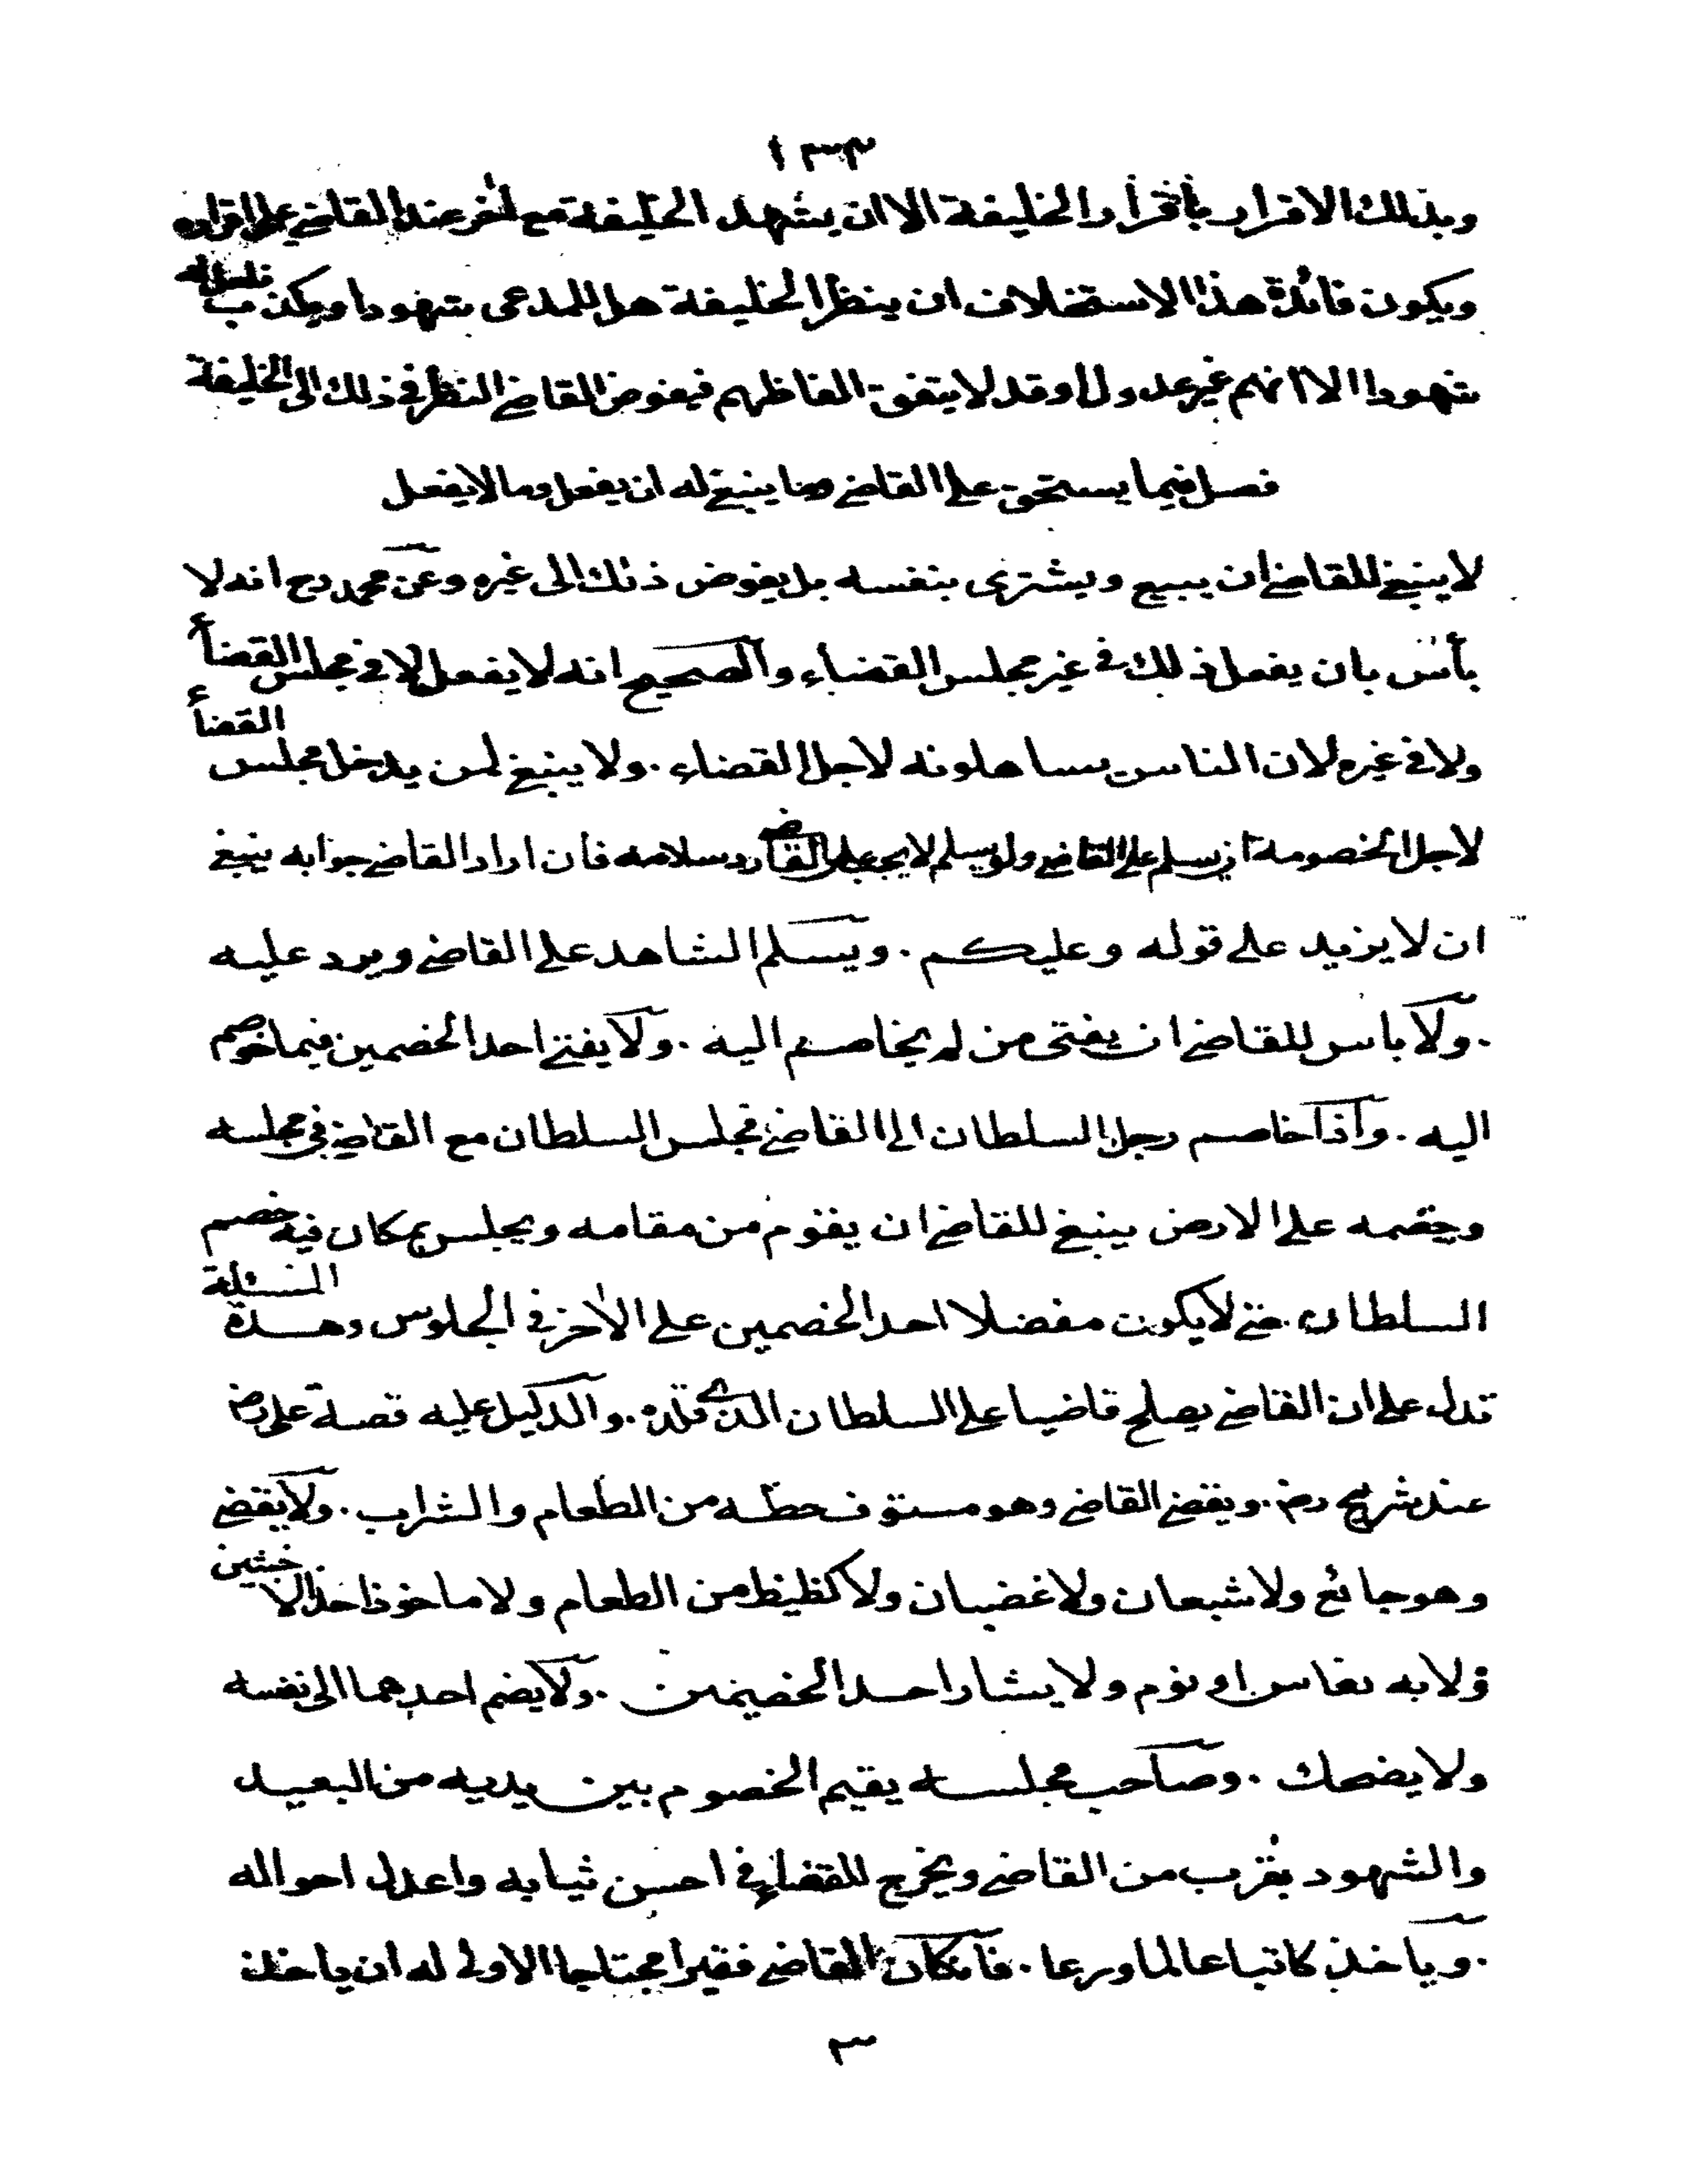 ١٣٣
وبذلك الاقرار باقرار الخليفة الا ان يشهد الخليفة مع اخر عند القاضي على اقراره
ويكون فائدة هذا الاستخلاف ان ينظر الخليفة هل للمدعى شهودا ويكذب
شهودا الا انهم غير عدول او قد لا يتفق الفاظهم فيفوض القاضي النظر في ذلك الى الخليفة
فصل فيما يستحق على القاضي وما ينبغي له ان يفعل وما لا يفعل
لا ينبغي للقاضي ان يبيع ويشترى بنفسه بل يفوض ذلك الى غيره وعن محمد رح انه لا
بأس بان يفعل ذلك في غير مجلس القضاء والصحيح انه لا يفعل لا في مجلس القضاء
ولا في غيره لان الناس يساهلونه لاجل القضاء . ولا ينبغي لمن يدخل مجلس القضاء
لاجل الخصومة ان يسلم على القاضي ولو سلم لا يجب على القاضي رد سلامه فان اراد القاضي جوابه ينبغي
ان لا يزيد على قوله وعليكم . ويسلم الشاهد على القاضي ويرد عليه
. ولا باس للقاضي ان يفتى من لم يخاصم اليه . ولا يفتي احد الخصمين فيما خوصم
اليه . واذا خاصم رجل السلطان الى القاضي فجلس السلطان مع القاضي في مجلسه
وخصمه على الارض ينبغي للقاضي ان يقوم من مقامه ويجلس بمكان فيه خصم
السلطان . حتى لا يكون مفضلا احد الخصمين على الاخر في الجلوس وهذة المسئلة
تدل على ان القاضي يصلح قاضيا على السلطان الذي قلده . والدليل عليه قصة على رض
عند شريح رض . ويقضي القاضي وهو مستوف حظه من الطعام والشراب . ولا يقضي
وهو جائع ولا شبعان ولا غضبان ولا كظيظ من الطعام ولا ماخوذ احد الاخبثين
ولا به نعاس او نوم ولا يشار احد الخصيمين . ولا يضم احدهما الى نفسه
ولا يضحك . وصاحب مجلسه يقيم الخصوم بين يديه من البعيد
والشهود بقرب من القاضي ويخرج للقضاء في احسن ثيابه واعدل احواله
. وياخذ كاتبا عالما ورعا . فان كان القاضي فقيرا محتاجا الاولى له ان ياخذ
٣